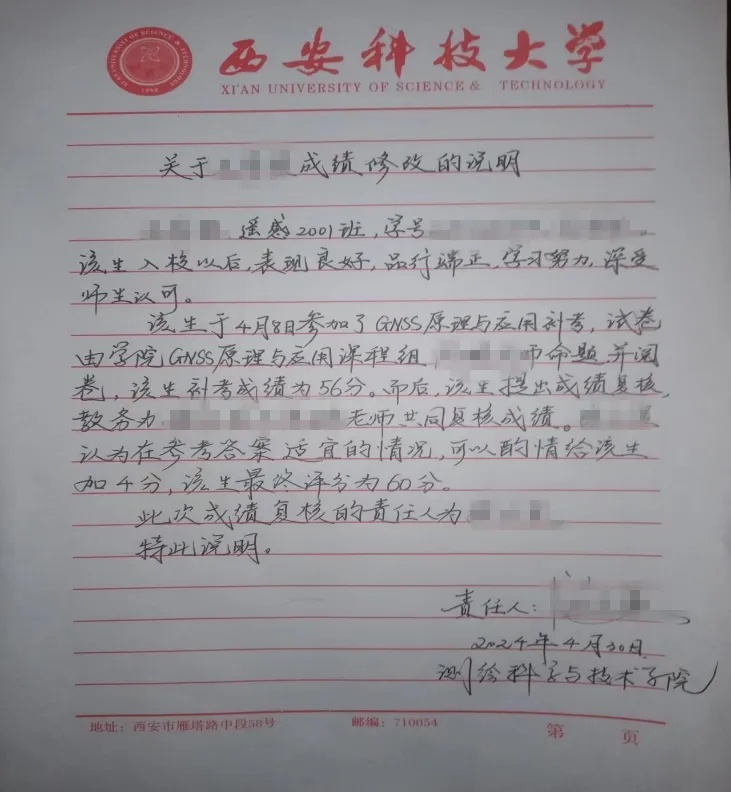 西安科技大学
XI'AN UNIVERSITY OF SCIENCE & TECHNOLOGY
关于 成绩修改的说明
遥感2001班,学号 。
该生入校以后,表现良好,品行端正,学习努力,深受
师生认可。
该生于4月8日参加了GNSS原理与应用补考,试卷
由学院GNSS原理与应用课程组 命题并阅
卷,该生补考成绩为56分。而后,该生提出成绩复核,
教务为 老师共同复核成绩。
认为在参考答案适宜的情况,可以酌情给该生
加4分,该生最终评分为60分。
此次成绩复核的责任人为 。
特此说明。
责任人:
2024年4月30日
测绘科学与技术学院
地址:西安市雁塔路中段58号 邮编:710054 第 页